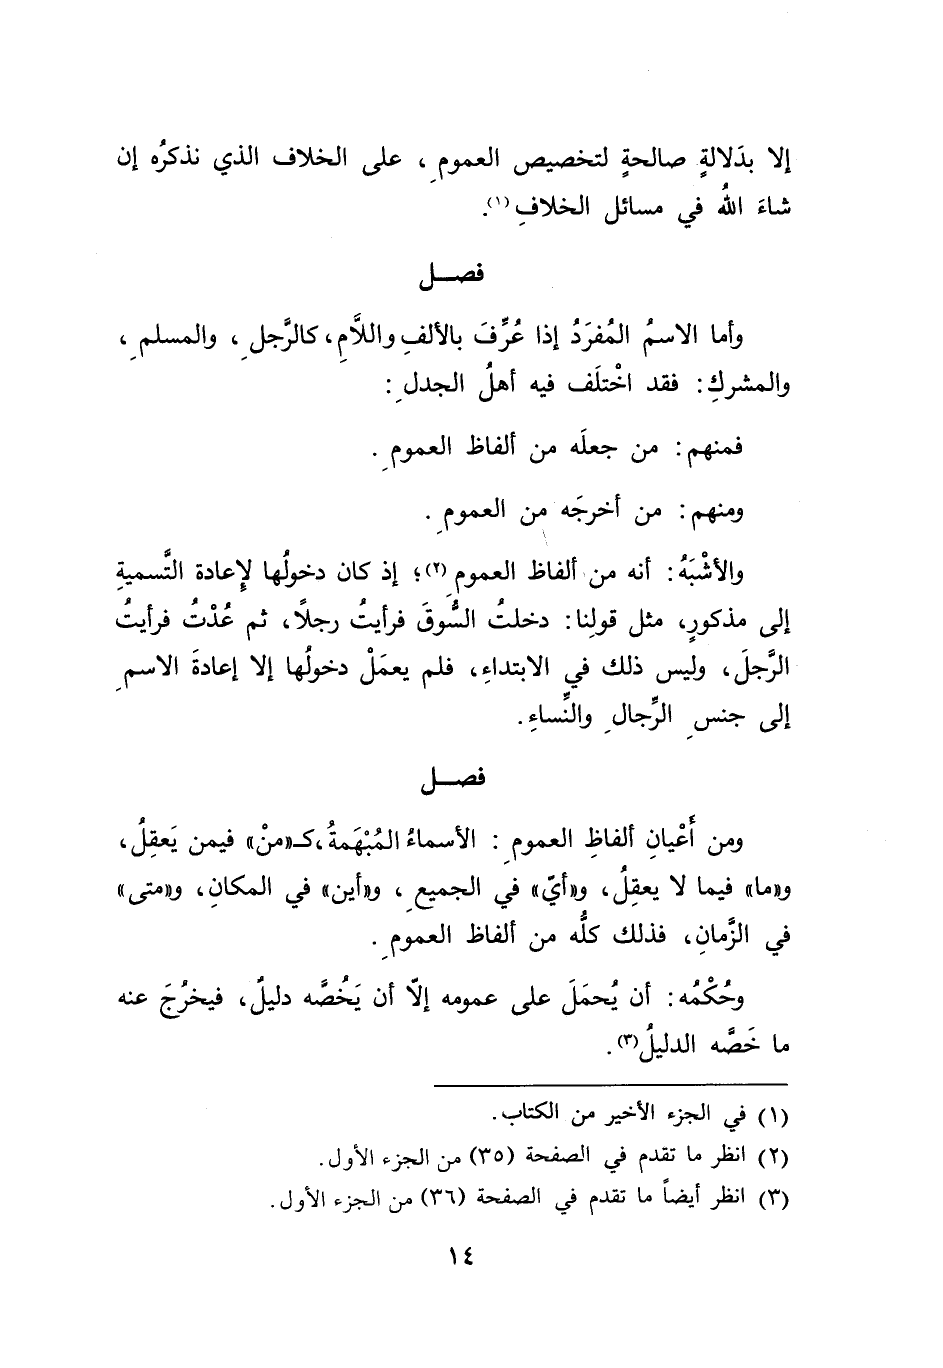 إلا بدَلالةٍ صالحةٍ لتخصيص العمومِ، على الخلاف الذي نذكرُه إن
شاءَ اللهُ في مسائل الخلافِ(١).
فصـــل
وأما الاسمُ المُفرَدُ إذا عُرِّفَ بالألفِ واللَّامِ، كالرَّجلِ، والمسلمِ،
والمشركِ: فقد اخْتلَف فيه أهلُ الجدلِ:
فمنهم: من جعلَه من ألفاظ العمومِ.
ومنهم: من أخرجَه من العمومِ.
والأشْبَهُ: أنه من ألفاظ العمومِ(٢)؛ إذ كان دخولُها لإعادة التَّسميةِ
إلى مذكورٍ، مثل قولِنا: دخلتُ السُّوقَ فرأيتُ رجلًا، ثم عُدْتُ فرأيتُ
الرَّجلَ، وليس ذلك في الابتداءِ، فلم يعمَلْ دخولُها إلا إعادةَ الاسمِ
إلى جنسِ الرِّجالِ والنِّساءِ.
فصـــل
ومن أَعْيانِ ألفاظِ العمومِ: الأسماءُ المُبْهَمةُ، كـ«منْ» فيمن يَعقِلُ،
و«ما» فيما لا يعقِلُ، و«أيّ» في الجميعِ، و«أين» في المكانِ، و«متى»
في الزَّمانِ، فذلك كلُّه من ألفاظ العمومِ.
وحُكْمُه: أن يُحمَلَ على عمومه إلّا أن يَخُصَّه دليلٌ، فيخرُجَ عنه
ما خَصَّه الدليلُ(٣).
(١) في الجزء الأخير من الكتاب.
(٢) انظر ما تقدم في الصفحة (٣٥) من الجزء الأول.
(٣) انظر أيضاً ما تقدم في الصفحة (٣٦) من الجزء الأول.
١٤